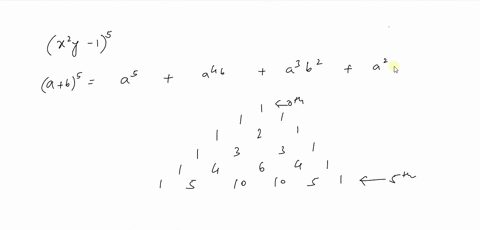 (x²y - 1)⁵
(a+b)⁵ = a⁵ + a⁴b + a³b² + a²
1 ← 0th
1 1
1 2 1
1 3 3 1
1 4 6 4 1
1 5 10 10 5 1 ← 5th